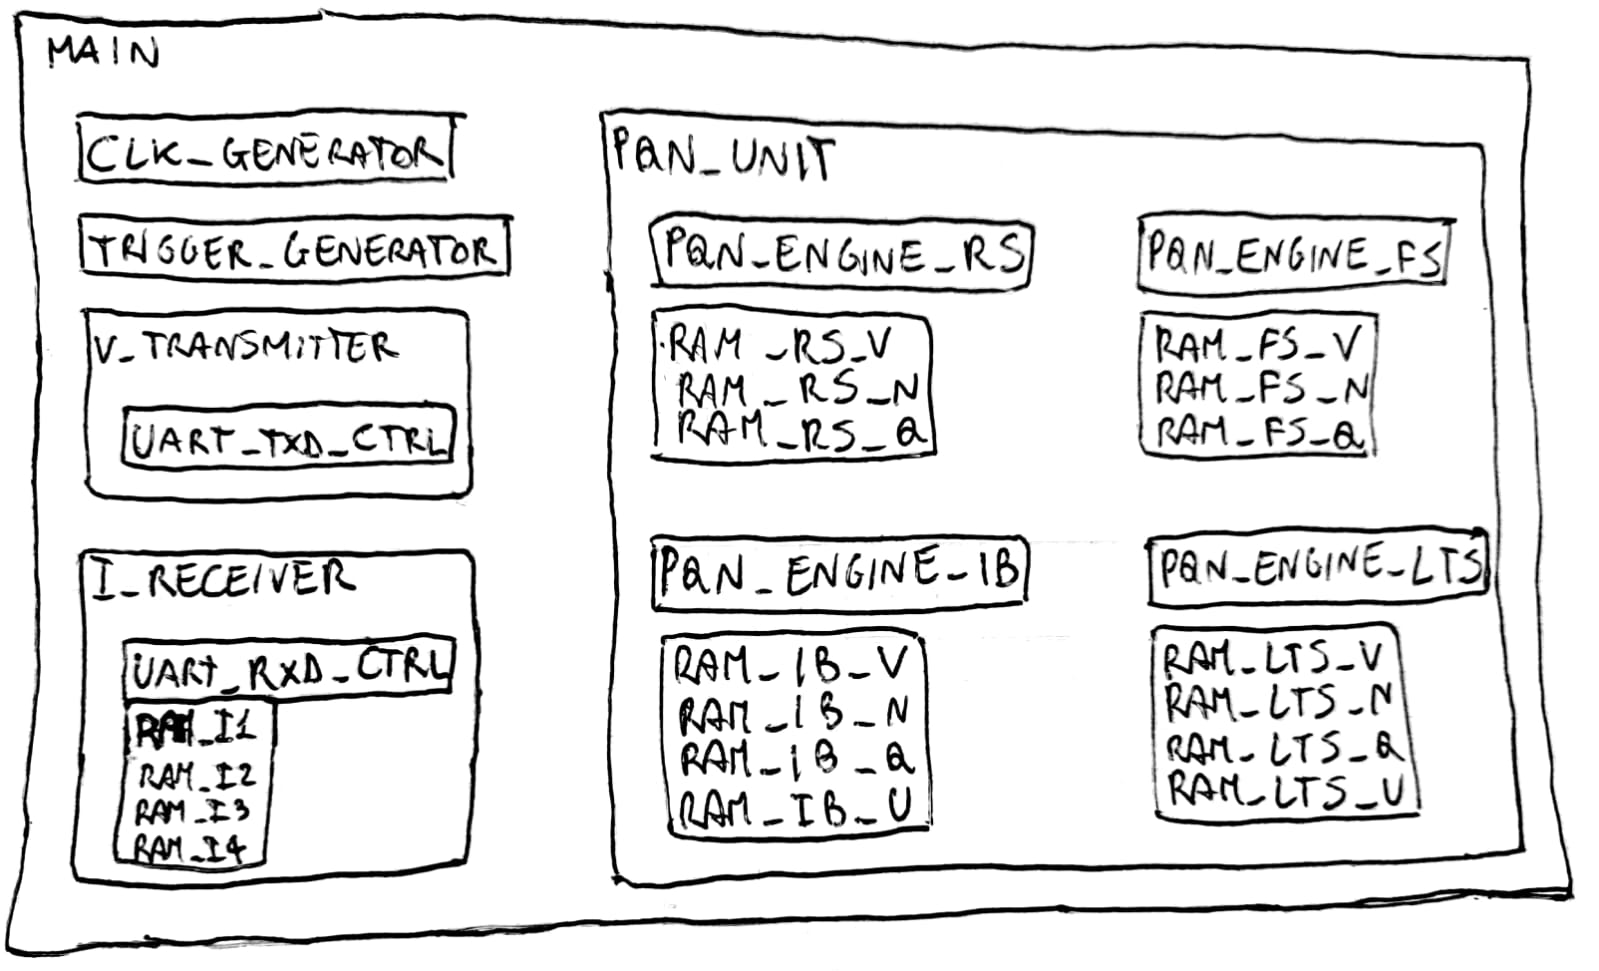 MAIN
CLK_GENERATOR
TRIGGER_GENERATOR
V_TRANSMITTER
UART_TXD_CTRL
I_RECEIVER
UART_RXD_CTRL
RAM_I1
RAM_I2
RAM_I3
RAM_I4
PQN_UNIT
PQN_ENGINE_RS
RAM_RS_V
RAM_RS_N
RAM_RS_Q
PQN_ENGINE_FS
RAM_FS_V
RAM_FS_N
RAM_FS_Q
PQN_ENGINE_IB
RAM_IB_V
RAM_IB_N
RAM_IB_Q
RAM_IB_U
PQN_ENGINE_LTS
RAM_LTS_V
RAM_LTS_N
RAM_LTS_Q
RAM_LTS_U